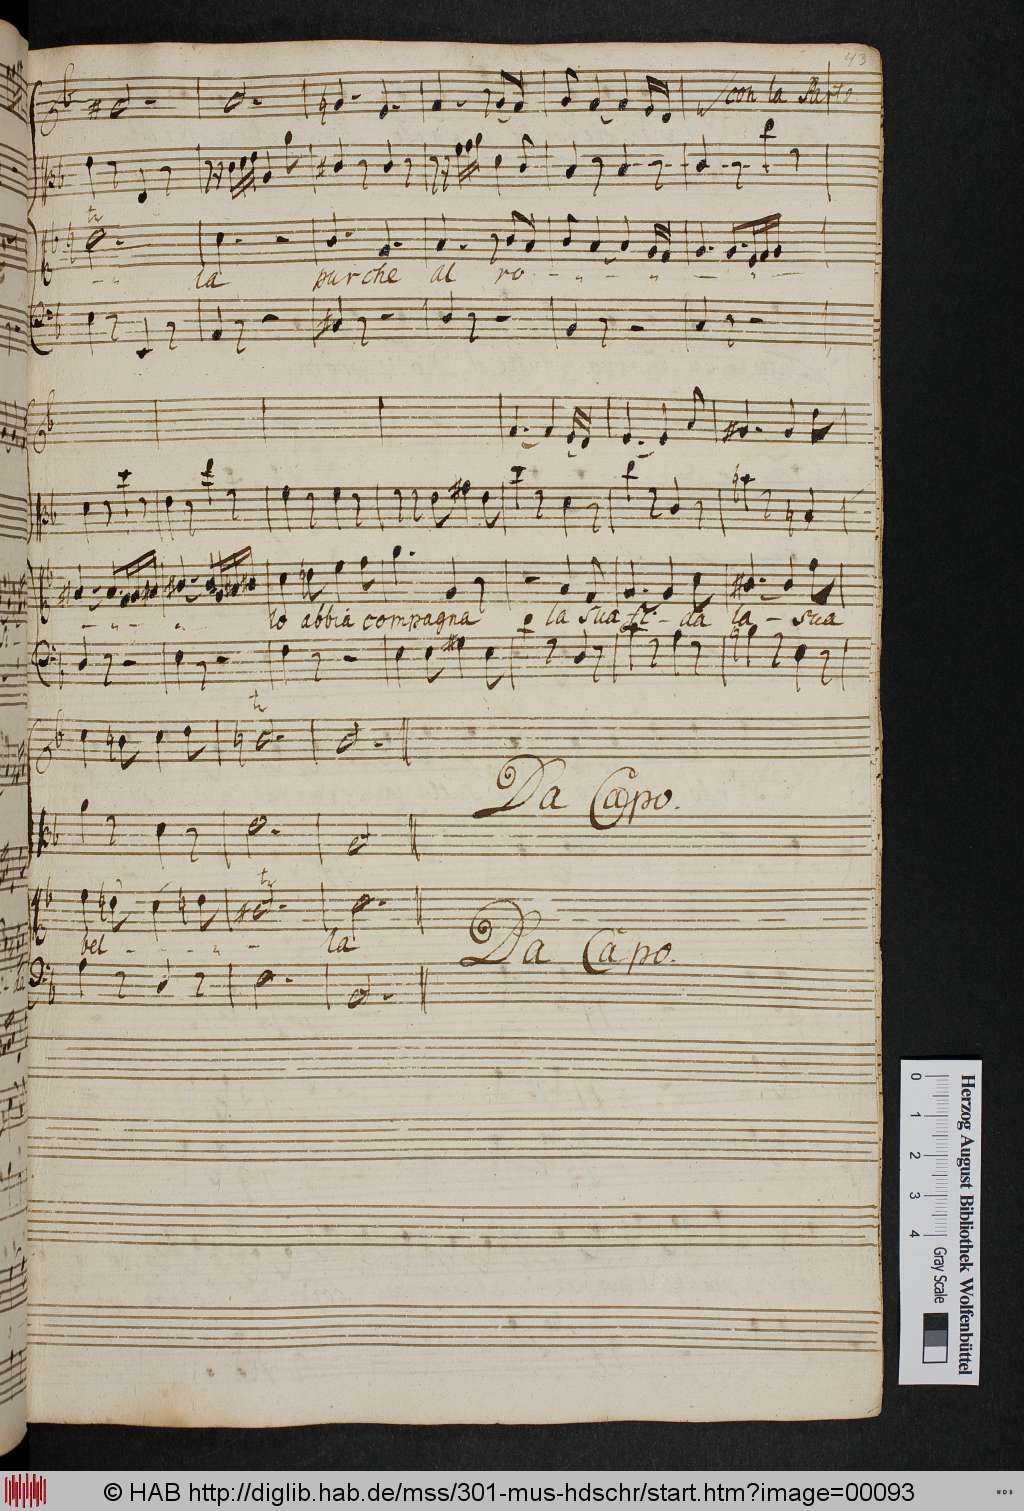 43
con la Parte
la purche al ro
lo abbia compagna e la sua fi - da la - sua
Da Capo.
bel - - la
Da Capo.
0 1 2 3 4
Gray Scale
Herzog August Bibliothek Wolfenbüttel
© HAB http://diglib.hab.de/mss/301-mus-hdschr/start.htm?image=00093